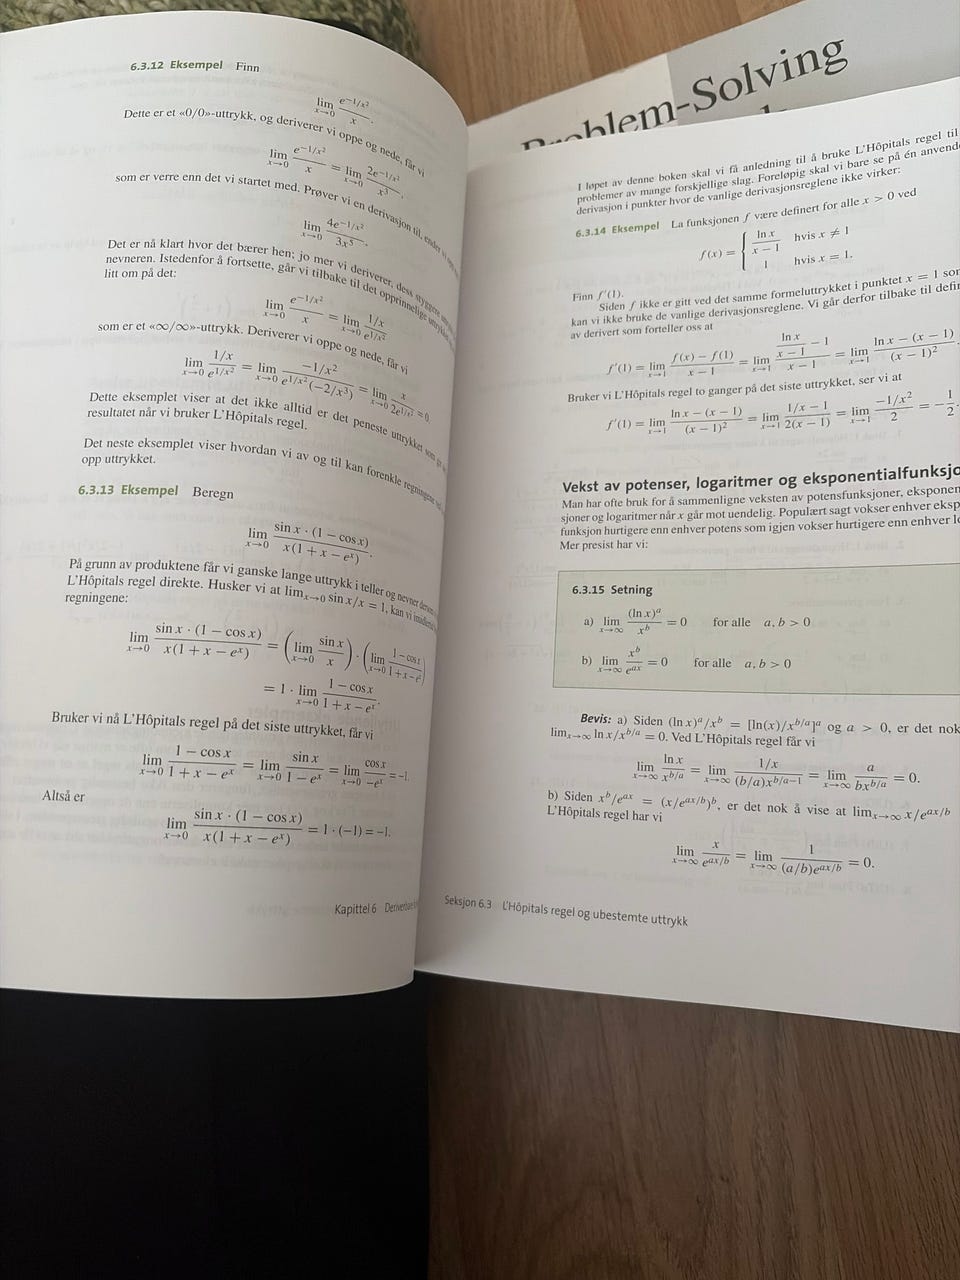 6.3.12 Eksempel Finn
lim x→0 e^{−1/x²}/x.
Dette er et «0/0»-uttrykk, og deriverer vi oppe og nede, får vi
lim x→0 e^{−1/x²}/x = lim x→0 2e^{−1/x²}/x³,
som er verre enn det vi startet med. Prøver vi en derivasjon til, ender vi opp
lim x→0 4e^{−1/x²}/3x⁵.
Det er nå klart hvor det bærer hen; jo mer vi deriverer, dess styggere
nevneren. Istedenfor å fortsette, går vi tilbake til det opprinnelige uttrykket
litt om på det:
lim x→0 e^{−1/x²}/x = lim x→0 (1/x)/e^{1/x²}
som er et «∞/∞»-uttrykk. Deriverer vi oppe og nede, får vi
lim x→0 (1/x)/e^{1/x²} = lim x→0 (−1/x²)/(e^{1/x²}(−2/x³)) = lim x→0 x/(2e^{1/x²}) = 0
Dette eksemplet viser at det ikke alltid er det peneste uttrykket som
resultatet når vi bruker L'Hôpitals regel.
Det neste eksemplet viser hvordan vi av og til kan forenkle regningene ved
opp uttrykket.
6.3.13 Eksempel Beregn
lim x→0 (sin x · (1 − cos x))/(x(1 + x − e^x)).
På grunn av produktene får vi ganske lange uttrykk i teller og nevner dersom
L'Hôpitals regel direkte. Husker vi at lim_{x→0} sin x/x = 1, kan vi
regningene:
lim x→0 (sin x · (1 − cos x))/(x(1 + x − e^x)) = (lim x→0 sin x/x) · (lim x→0 (1 − cos x)/(1 + x − e^x))
= 1 · lim x→0 (1 − cos x)/(1 + x − e^x).
Bruker vi nå L'Hôpitals regel på det siste uttrykket, får vi
lim x→0 (1 − cos x)/(1 + x − e^x) = lim x→0 sin x/(1 − e^x) = lim x→0 cos x/−e^x = −1.
Altså er
lim x→0 (sin x · (1 − cos x))/(x(1 + x − e^x)) = 1 · (−1) = −1.
Kapittel 6
Problem-Solving
I løpet av denne boken skal vi få anledning til å bruke L'Hôpitals regel til
problemer av mange forskjellige slag. Foreløpig skal vi bare se på én
derivasjon i punkter hvor de vanlige derivasjonsreglene ikke virker:
6.3.14 Eksempel La funksjonen f være definert for alle x > 0 ved
f(x) = { ln x/(x − 1) hvis x ≠ 1
1 hvis x = 1.
Finn f′(1).
Siden f ikke er gitt ved det samme formeluttrykket i punktet x = 1
kan vi ikke bruke de vanlige derivasjonsreglene. Vi går derfor tilbake til
av derivert som forteller oss at
f′(1) = lim x→1 (f(x) − f(1))/(x − 1) = lim x→1 (ln x/(x − 1) − 1)/(x − 1) = lim x→1 (ln x − (x − 1))/(x − 1)²
Bruker vi L'Hôpitals regel to ganger på det siste uttrykket, ser vi at
f′(1) = lim x→1 (ln x − (x − 1))/(x − 1)² = lim x→1 (1/x − 1)/(2(x − 1)) = lim x→1 (−1/x²)/2 = −1/2.
Vekst av potenser, logaritmer og
Man har ofte bruk for å sammenligne veksten av potensfunksjoner,
sjoner og logaritmer når x går mot uendelig. Populært sagt vokser enhver
funksjon hurtigere enn enhver potens som igjen vokser hurtigere enn enhver
Mer presist har vi:
6.3.15 Setning
a) lim x→∞ (ln x)^a/x^b = 0 for alle a, b > 0
b) lim x→∞ x^b/e^{ax} = 0 for alle a, b > 0
Bevis: a) Siden (ln x)^a/x^b = [ln(x)/x^{b/a}]^a og a > 0, er det nok
lim_{x→∞} ln x/x^{b/a} = 0. Ved L'Hôpitals regel får vi
lim x→∞ ln x/x^{b/a} = lim x→∞ (1/x)/((b/a)x^{b/a−1}) = lim x→∞ a/(bx^{b/a}) = 0.
b) Siden x^b/e^{ax} = (x/e^{ax/b})^b, er det nok å vise at lim_{x→∞} x/e^{ax/b}
L'Hôpitals regel har vi
lim x→∞ x/e^{ax/b} = lim x→∞ 1/((a/b)e^{ax/b}) = 0.
Seksjon 6.3 L'Hôpitals regel og ubestemte uttrykk